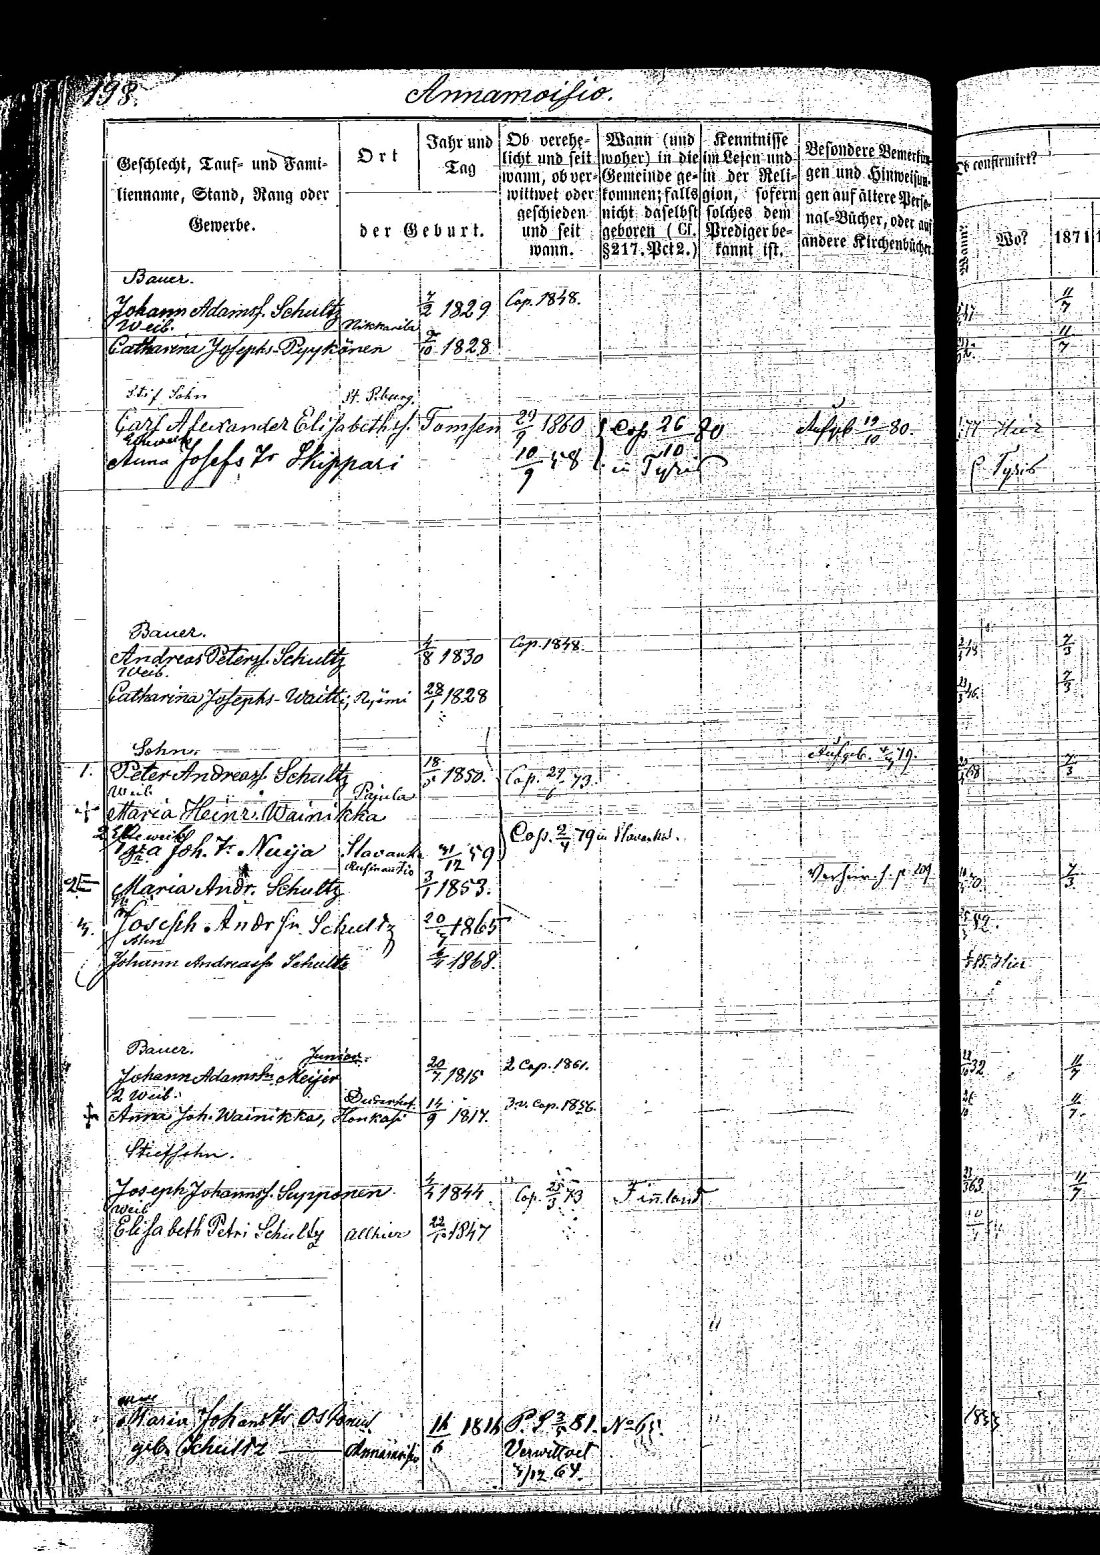 198.
Annamoisio.
Geschlecht, Tauf- und Fami-
lienname, Stand, Rang oder
Gewerbe.
Ort
Jahr und
Tag
der Geburt.
Ob verehe-
licht und seit
wann, ob ver-
wittwet oder
geschieden
und seit
wann.
Wann (und
woher) in die
Gemeinde ge-
kommen; falls
nicht daselbst
geboren (Cf.
§217. Pct 2.)
Kenntnisse
im Lesen und
in der Reli-
gion, sofern
solches dem
Prediger be-
kannt ist.
Besondere Bemerkun-
gen und Hinweisun-
gen auf ältere Perso-
nal-Bücher, oder auf
andere Kirchenbücher.
Ob confirmirt?
Wann?
Wo?
1871
Bauer.
Johann Adamsf. Schultz 7/2 1829 Cop. 1848. 11/7
Weib. Nikkarila
Catharina Josephs- Pyykönen 1828 11/7
Stif Sohn St. Pburg.
Carl Alexander Elisabethsf. Tomsen 29/9 1860 Cop. 26/10 80 Aufgb 19/10 80. 77 Hier
Eheweib
Anna Josefs Tr Skippari 10/9 58 in Tyris Tyris
Bauer.
Andreas Petersf. Schultz 4/8 1830 Cop. 1848. 7/3
Weib.
Catharina Josephs- Waitti, Ryömi 28/1 1828 7/3
Sohn. Aufgeb. 79.
1. Peter Andreasf. Schultz 18 1850. Cop. 73. 68 7/3
Weib Pajula
Maria Heinr. Wainikka
2 Eheweib Cop. 2/4 79 in Slavanka.
Joh. Tr Nuija Slavanka 31/12 59
Maria Andr. Schultz 3/1 1853. 7/3
4. Joseph Andr Sn. Schultz 20 1865 82.
Sohn
Johann Andreasf. Schultz 1868. 85. Hier
Bauer. Junior.
Johann Adams Meijer 20/7 1815 2 Cop. 1861. 32 11/7
2 Weib. Duderhof.
Anna Joh. Wainikka, Honkasi 14/9 1817. Cop. 1856. 11/7
Stiefsohn.
Joseph Johannsf. Sepponen 1844 Cop. 25/3 73 Finland 63 11/7
Weib
Elisabeth Petri Schultz allhier 22 1847
Maria Johans Tr 16/6 1816 P.S. 81. No 65.
geb. Schultz Annamoisio Verwittvet
7/12 64.